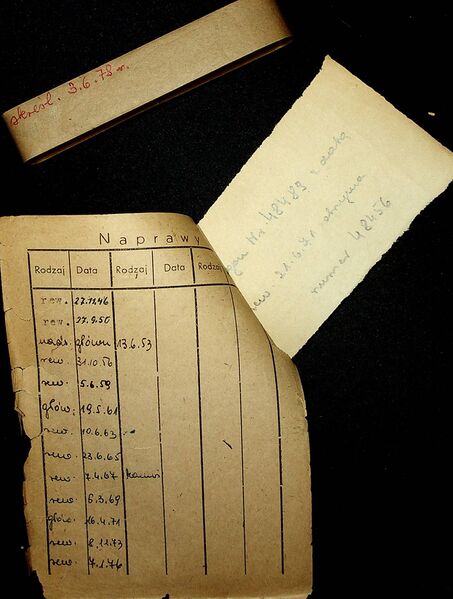 skreśl. 3.6.78 r.
Nr 48483 z datą
rew. 21.6.71 otrzyma
numer 48456
Naprawy
Rodzaj Data Rodzaj Data Rodzaj
rew. 27.12.46
rew. 27.9.50
nadz. główn 13.6.53
rew. 31.10.56
rew. 5.6.59
głów. 19.5.61
rew. 10.6.63
rew. 23.6.65
rew. 7.4.67
rew. 6.3.69
głów. 16.4.71
rew. 2.11.73
rew. 7.1.76